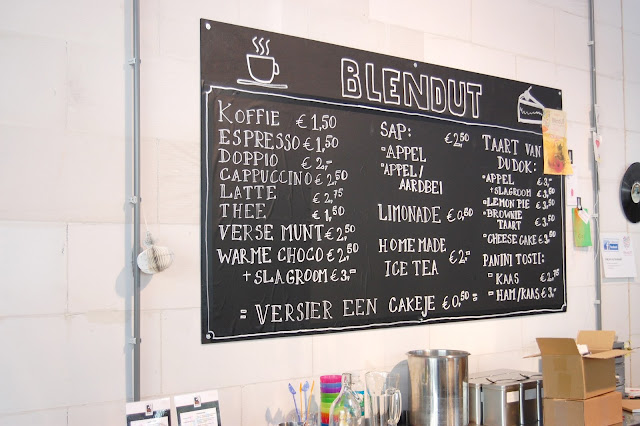 BLENDUT
KOFFIE € 1,50
ESPRESSO € 1,50
DOPPIO € 2,-
CAPPUCCINO € 2,50
LATTE € 2,75
THEE € 1,50
VERSE MUNT € 2,50
WARME CHOCO € 2,50
+ SLAGROOM € 3,-
SAP: € 2,50
APPEL
APPEL/
AARDBEI
LIMONADE € 0,50
HOMEMADE
ICE TEA € 2,-
TAART VAN
DUDOK:
APPEL € 3,-
+ SLAGROOM € 3,50
LEMON PIE € 3,50
BROWNIE
TAART € 3,50
CHEESE CAKE € 3,50
PANINI TOSTI:
KAAS € 2,75
HAM/KAAS € 3,-
= VERSIER EEN CAKEJE € 0,50 =